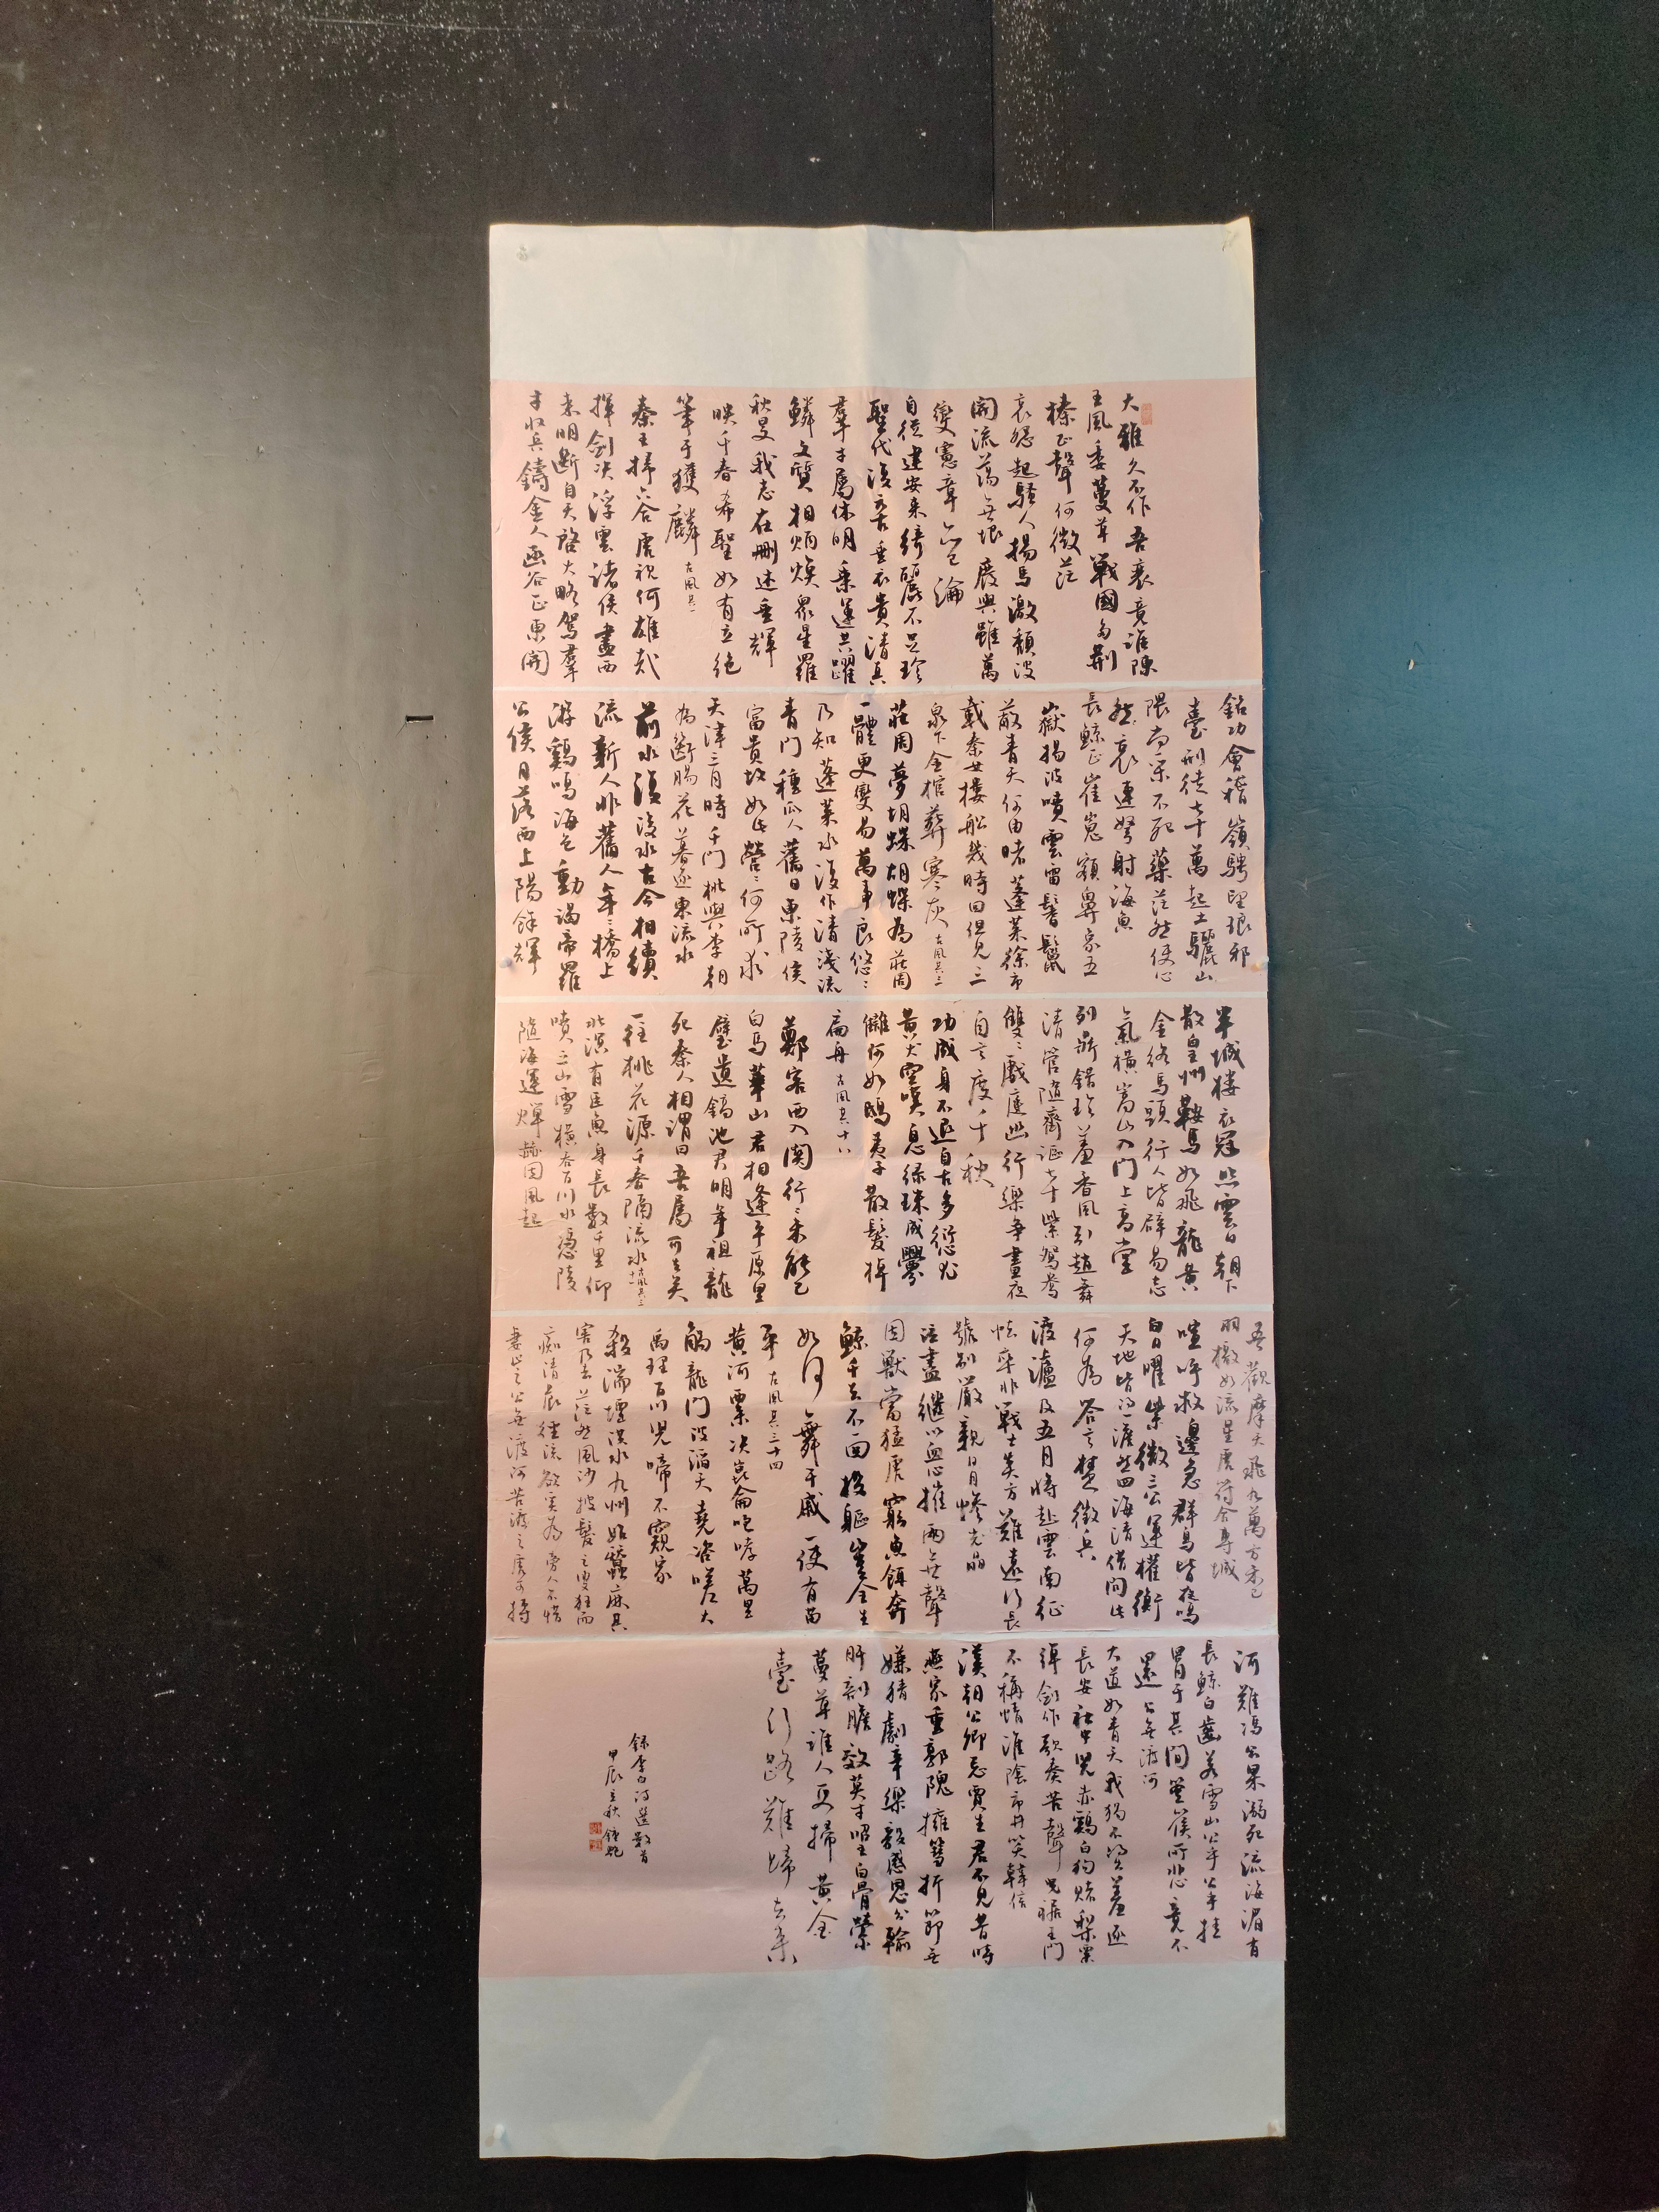 大雅久不作吾衰竟誰陳
王風委蔓草戰國多荊
榛正聲何微茫
哀怨起騷人揚馬激頹波
開流蕩無垠廢興雖萬
變憲章亦已淪
自從建安來綺麗不足珍
聖代復元古垂衣貴清真
羣才屬休明乘運共躍
鱗文質相炳煥眾星羅
秋旻我志在刪述垂輝
映千春希聖如有立絕
筆于獲麟 古風其一
秦王掃六合虎視何雄哉
揮劍決浮雲諸侯盡西
來明斷自天啓大略駕羣
才收兵鑄金人函谷正東開
銘功會稽嶺騁望琅邪
臺刑徒七十萬起土驪山
隈尚采不死藥茫然使心
然哀連弩射海魚
長鯨正崔嵬額鼻象五
嶽揚波噴雲雷鬐鬣
蔽青天何由睹蓬萊徐市
載秦女樓船幾時回但見三
泉下金棺葬寒灰 古風其三
莊周夢胡蝶胡蝶為莊周
一體更變易萬事良悠〻
乃知蓬萊水復作清淺流
青門種瓜人舊日東陵侯
富貴故如此營〻何所求
天津三月時千門桃與李朝
為斷腸花暮逐東流水
前水復後水古今相續
流新人非舊人年〻橋上
游鷄鳴海色動謁帝羅
公侯月落西上陽餘輝
半城樓衣冠照雲日朝下
散皇州鞍馬如飛龍黃
金絡馬頭行人皆辟易志
氣橫嵩山入門上高堂
列鼎錯珍羞香風引趙舞
清管隨齊謳七十紫鴛鴦
雙〻戲庭幽行樂爭晝夜
自言度千秋
功成身不退自古多愆尤
黃犬空嘆息綠珠成釁
讎何如鴟夷子散髮棹
扁舟 古風其十八
鄭客西入關行〻未能已
白馬華山君相逢平原里
璧遺鎬池君明年祖龍
死秦人相謂曰吾屬可去矣
一往桃花源千春隔流水 古風其三十一
北溟有巨魚身長數千里仰
噴三山雪橫吞百川水憑陵
隨海運燀赫因風起
吾觀摩天飛九萬方未已
羽檄如流星虎符合專城
喧呼救邊急群鳥皆夜鳴
白日曜紫微三公運權衡
天地皆得一澹然四海清借問此
何為答言楚徵兵
渡瀘及五月將赴雲南征
怯卒非戰士炎方難遠行長
號別嚴親日月慘光晶
泣盡繼以血心摧兩無聲
困獸當猛虎窮魚餌奔
鯨千去不一回投軀豈全生
如何舞干戚一使有苗
平 古風其三十四
黃河西來決崑崙咆哮萬里
觸龍門波滔天堯咨嗟大
禹理百川兒啼不窺家
殺湍堙洪水九州始蠶麻其
害乃去茫然風沙披髮之叟狂而
痴清晨徑流欲奚為旁人不惜
妻止之公無渡河苦渡之虎可搏
河難馮公果溺死流海湄有
長鯨白齒若雪山公乎公乎挂
罥于其間箜篌所悲竟不
還 公無渡河
大道如青天我獨不得出羞逐
長安社中兒赤鷄白狗賭梨栗
彈劍作歌奏苦聲曳裾王門
不稱情淮陰市井笑韓信
漢朝公卿忌賈生君不見昔時
燕家重郭隗擁篲折節無
嫌猜劇辛樂毅感恩分輸
肝剖膽效英才昭王白骨縈
蔓草誰人更掃黃金
臺行路難歸去來
錄李白詩選數首
甲辰立秋